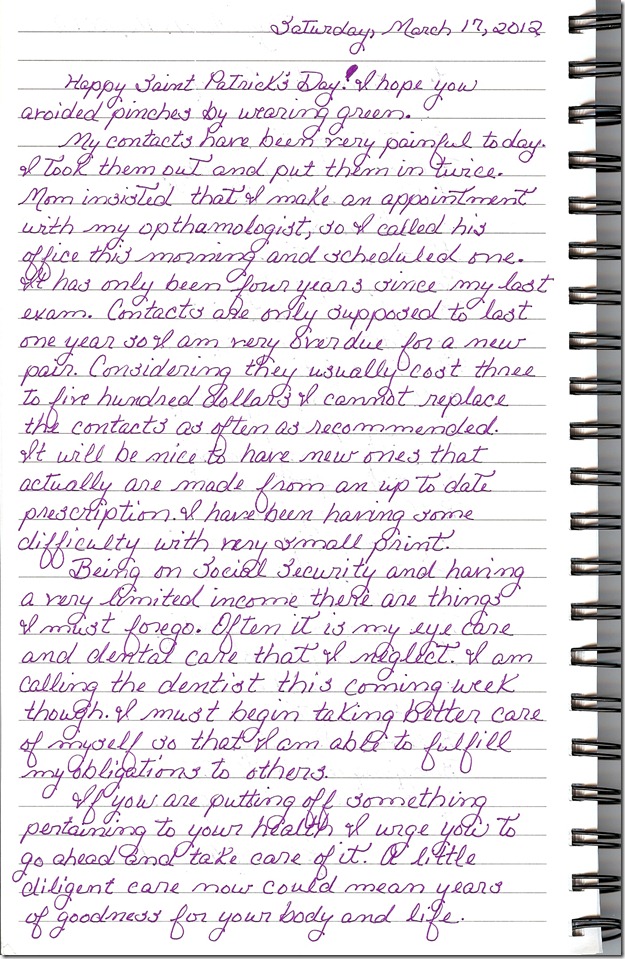 Saturday, March 17, 2012
Happy Saint Patrick's Day! I hope you
avoided pinches by wearing green.
My contacts have been very painful today.
I took them out and put them in twice.
Mom insisted that I make an appointment
with my opthamologist, so I called his
office this morning and scheduled one.
It has only been four years since my last
exam. Contacts are only supposed to last
one year so I am very overdue for a new
pair. Considering they usually cost three
to five hundred dollars I cannot replace
the contacts as often as recommended.
It will be nice to have new ones that
actually are made from an up to date
prescription. I have been having some
difficulty with very small print.
Being on Social Security and having
a very limited income there are things
I must forego. Often it is my eye care
and dental care that I neglect. I am
calling the dentist this coming week
though. I must begin taking better care
of myself so that I am able to fulfill
my obligations to others.
If you are putting off something
pertaining to your health I urge you to
go ahead and take care of it. A little
diligent care now could mean years
of goodness for your body and life.